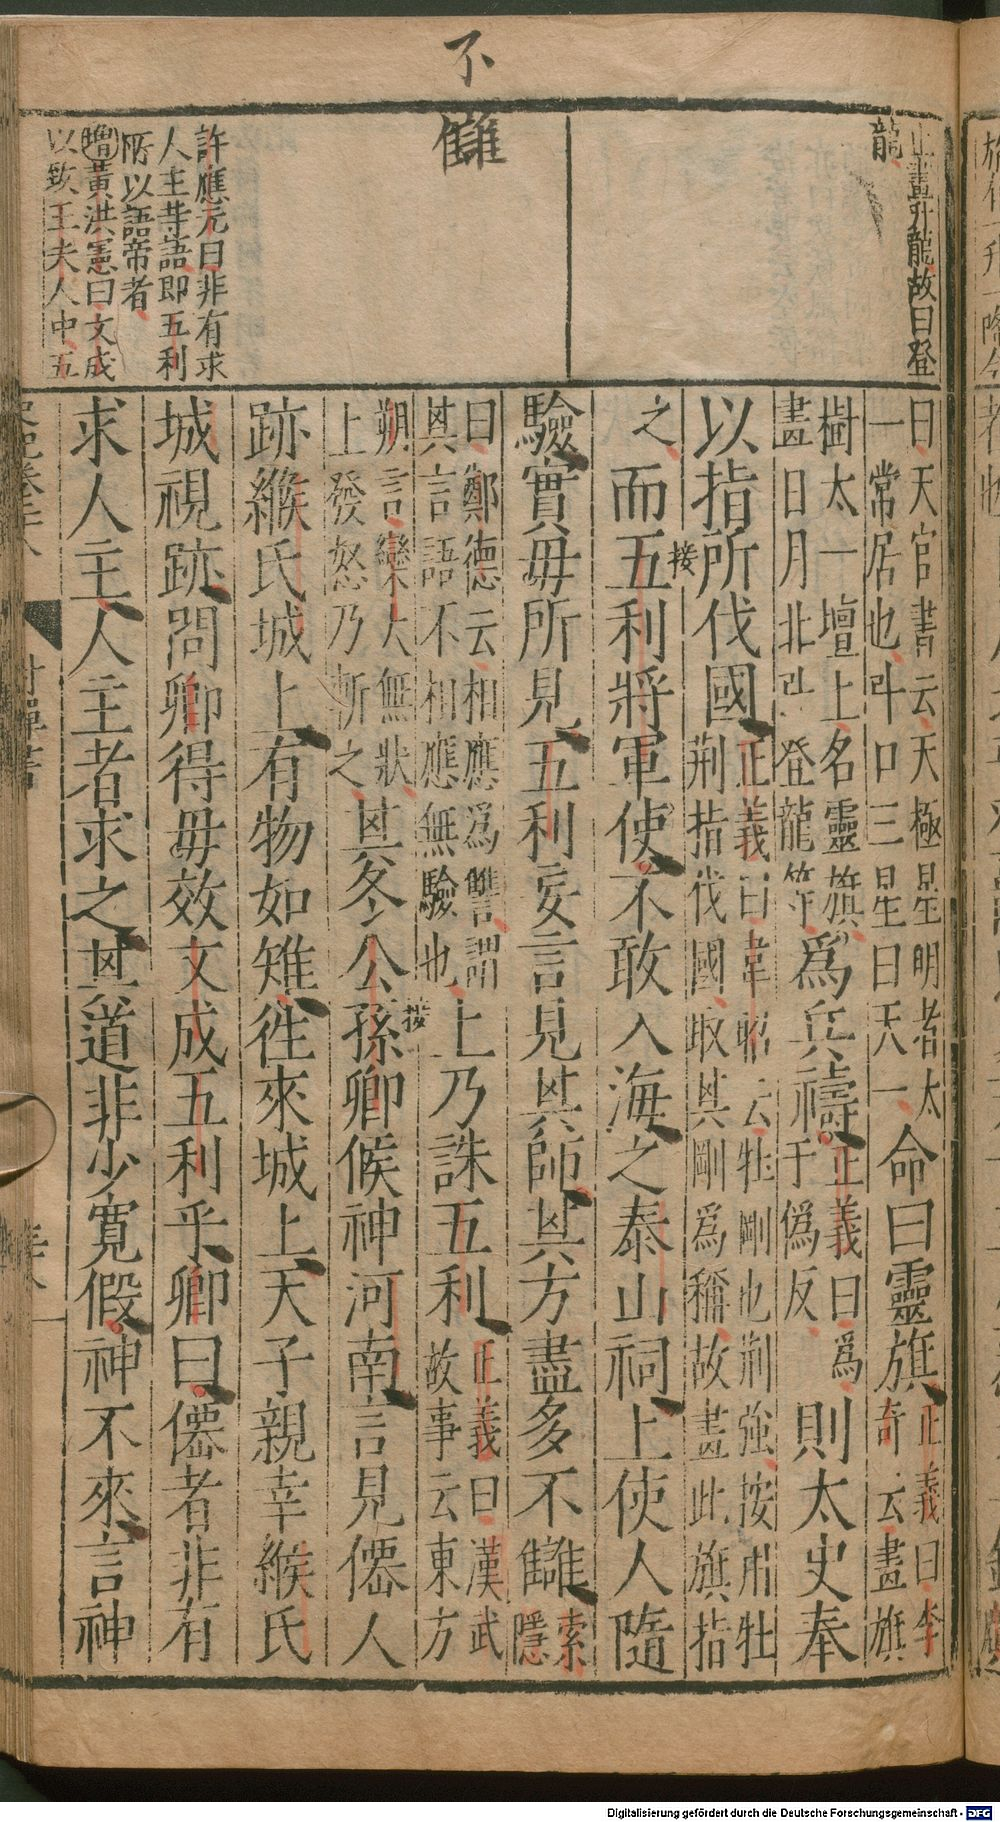 不
讎
上畫升龍故曰登
龍
許應元曰非有求
人主等語即五利
所以語帝者
增黃洪憲曰文成
以致王夫人中五
曰天官書云天極星明者太
一常居也斗口三星曰天一
命曰靈旗
正義曰李
奇云畫旗
樹太一壇上名靈旗
畫日月北斗登龍等
爲兵禱
正義曰爲
于僞反
則太史奉
以指所伐國
正義曰韋昭云牡剛也荊強按用牡
荊指伐國取其剛爲稱故畫此旗指
之
而五利將軍使不敢入海之泰山祠上使人隨
接
驗實毋所見五利妄言見其師其方盡多不讎
索
隱
曰鄭德云相應爲讎謂
其言語不相應無驗也
上乃誅五利
正義曰漢武
故事云東方
朔言欒大無狀
上發怒乃斬之
其冬公孫卿候神河南言見僊人
接
跡緱氏城上有物如雉往來城上天子親幸緱氏
城視跡問卿得毋效文成五利乎卿曰僊者非有
求人主人主者求之其道非少寬假神不來言神
史記卷二十八
封禪書
Digitalisierung gefördert durch die Deutsche Forschungsgemeinschaft - DFG